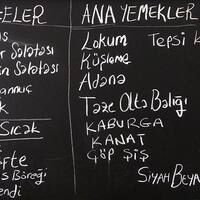 ELER
r Salatası
in Salatası
SICAK
fte
s Böreği
endi
ANA YEMEKLER
Lokum
Küşleme
Adana
Taze Olta Balığı
KABURGA
KANAT
ÇÖP ŞİŞ
Tepsi K
SİYAH BEYA